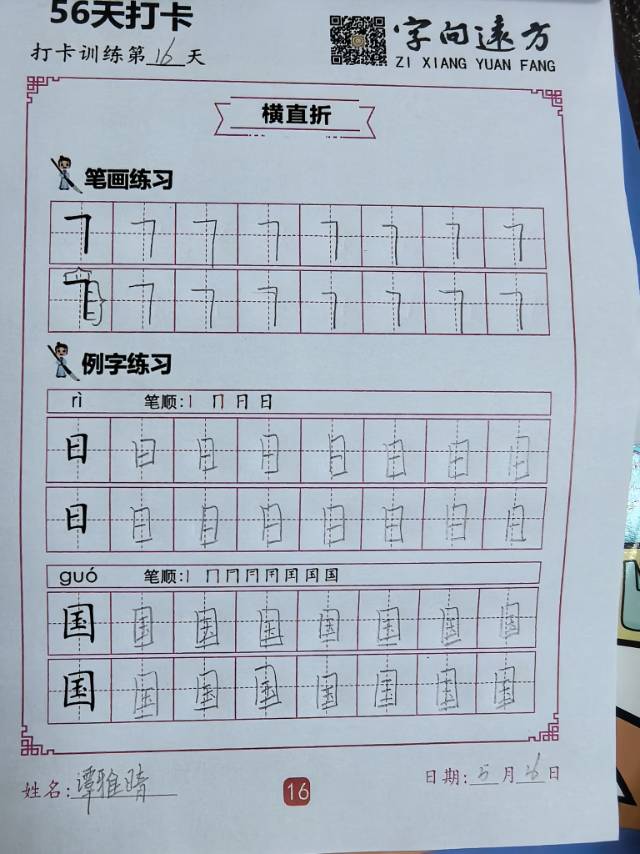 56天打卡
打卡训练第16天
字向远方
ZI XIANG YUAN FANG
横直折
笔画练习
㇕ ㇕ ㇕ ㇕ ㇕ ㇕ ㇕ ㇕
㇕ ㇕ ㇕ ㇕ ㇕ ㇕ ㇕ ㇕
例字练习
rì 笔顺:丨 冂 日 日
日 日 日 日 日 日 日 日
日 日 日 日 日 日 日 日
guó 笔顺:丨 冂 国
国 国 国 国 国 国 国 国
国 国 国 国 国 国 国 国
姓名:谭雅晴
16
日期:5月26日